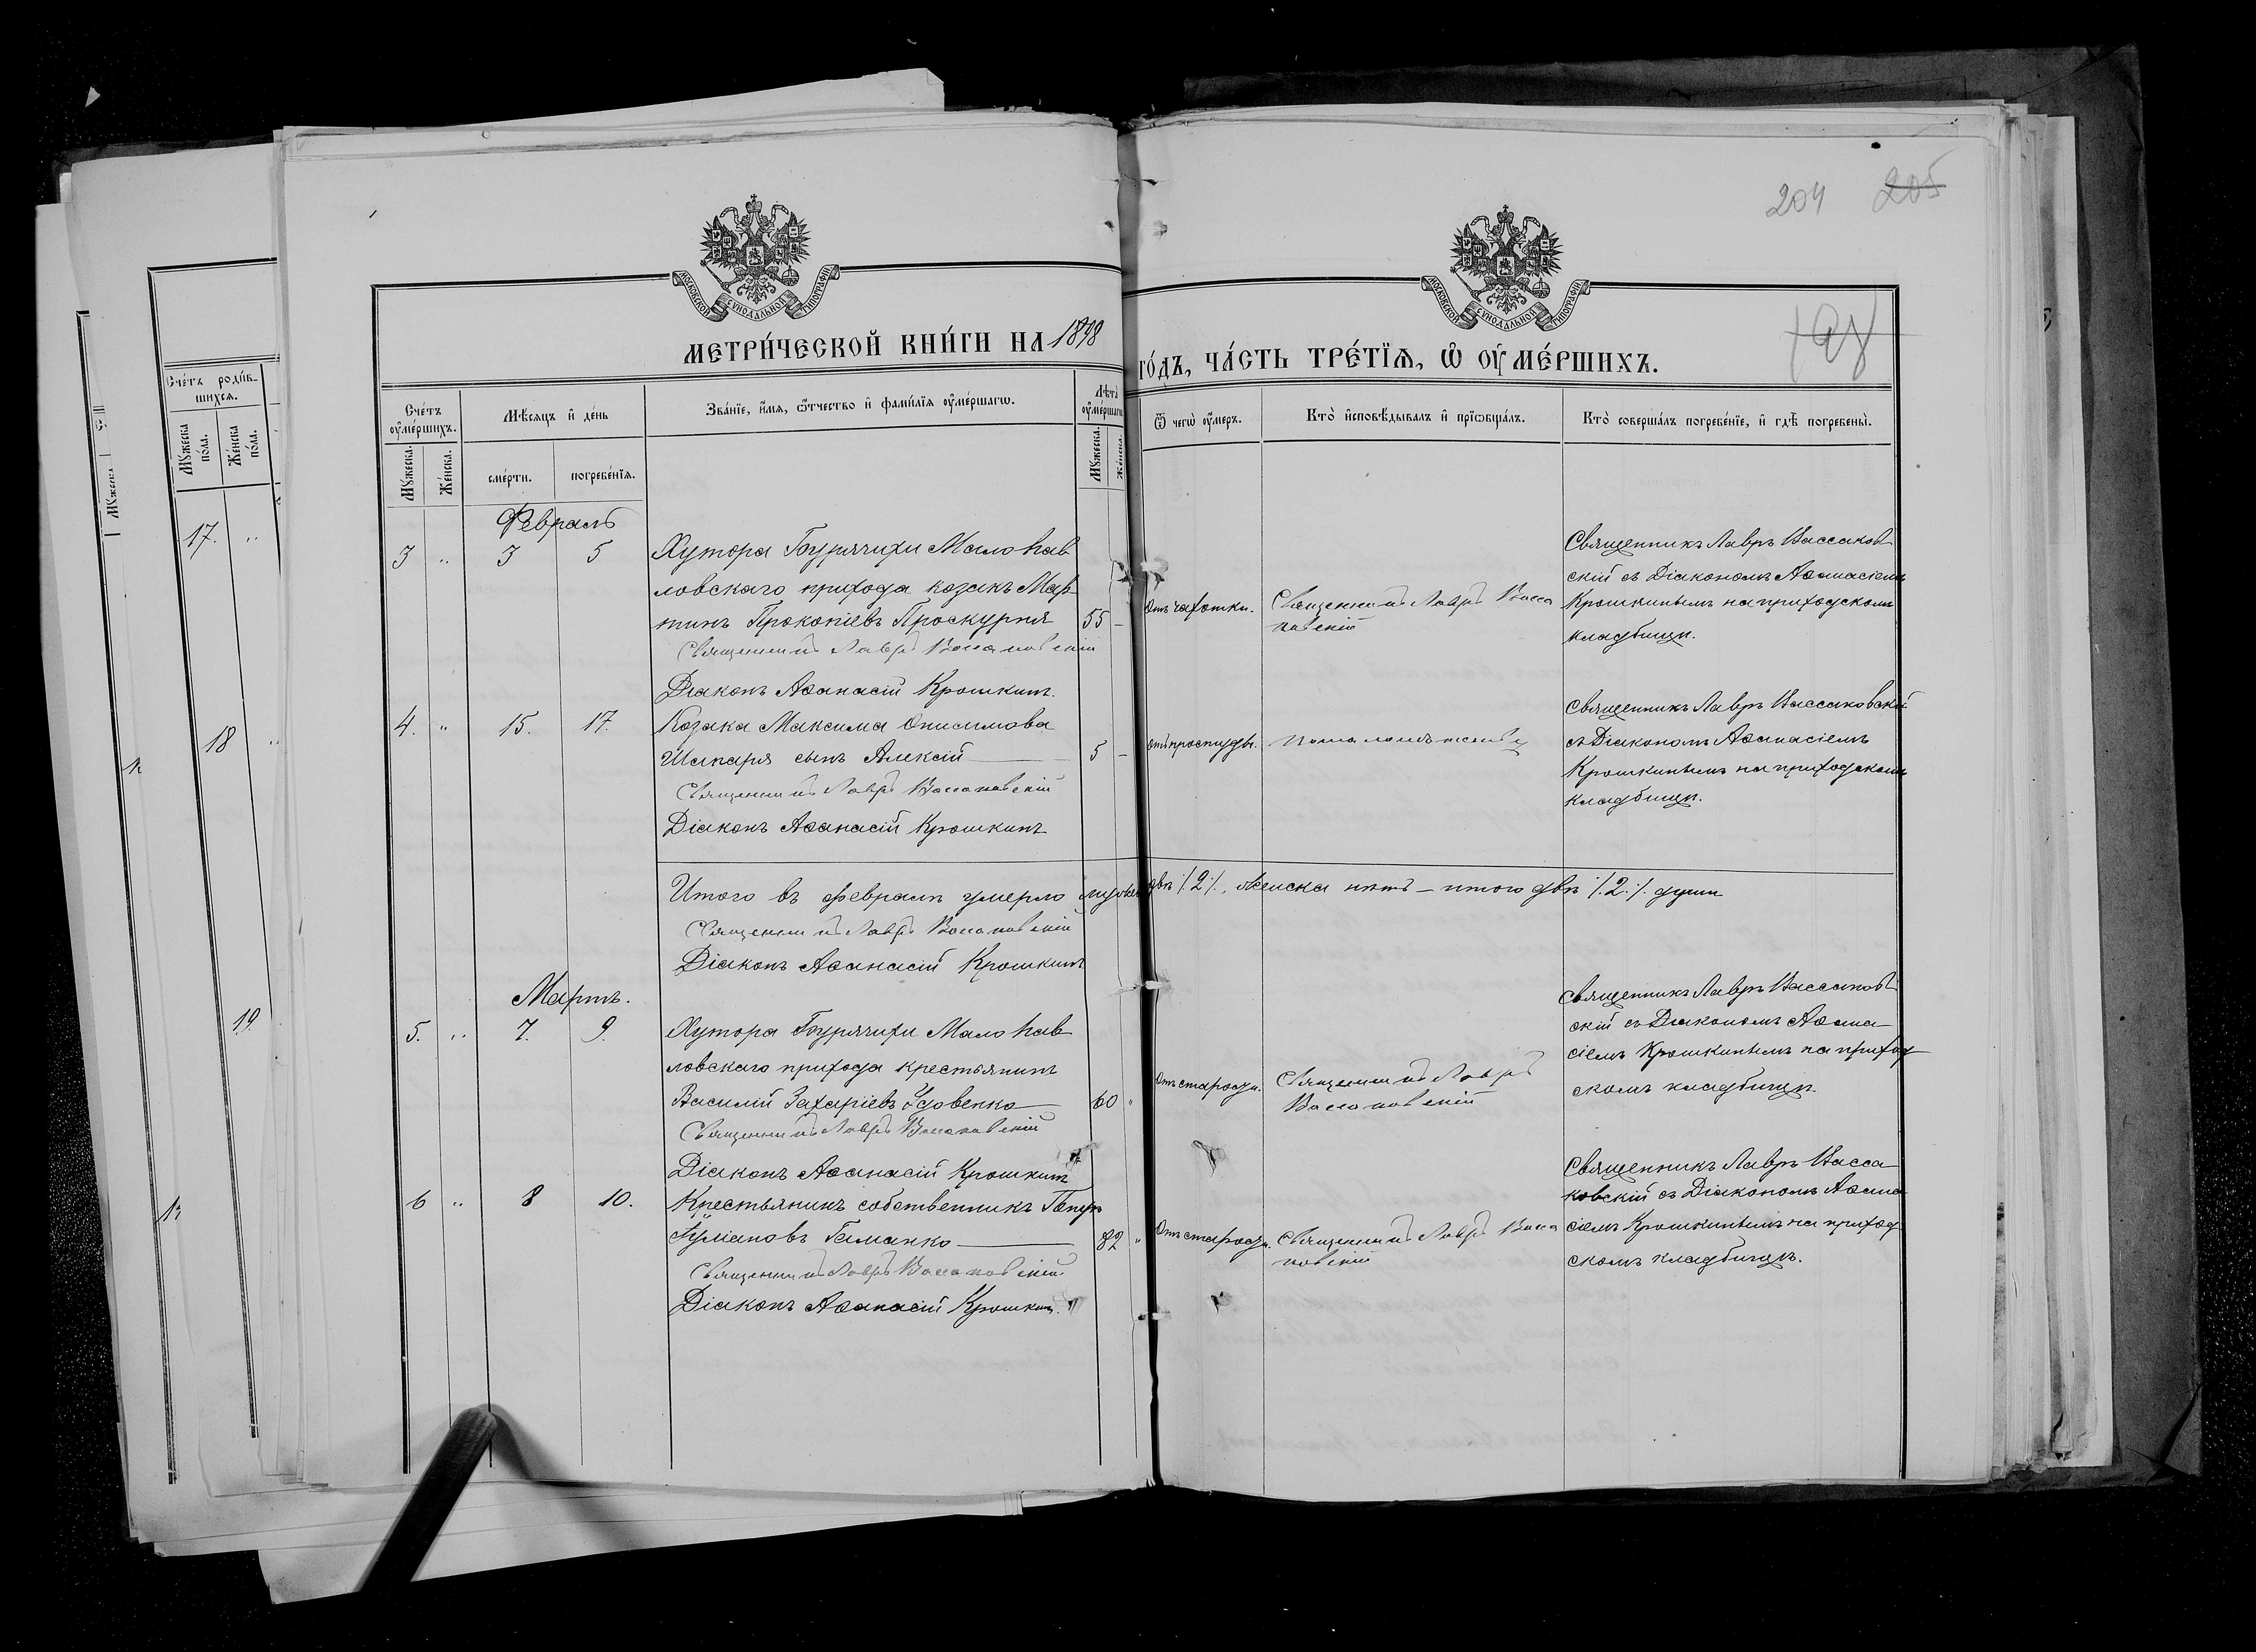 204 205
МОСКОВСКОЙ СѴНОДАЛЬНОЙ ТИПОГРАФІИ
МОСКОВСКОЙ СѴНОДАЛЬНОЙ ТИПОГРАФІИ
МЕТРИ́ЧЕСКОЙ КНИ́ГИ НА 1898
ГО́ДЪ, ЧА́СТЬ ТРЕ́ТЇѦ, Ѡ҆ ОУ҆МЕ́РШИХЪ.
Сче́тъ роди́в-
шихся.
Мꙋжеска по́ла.
Же́нска по́ла.
17.
18
19
Сче́тъ оу҆ме́ршихъ.
Мꙋжеска.
Же́нска.
Мѣсяцъ и҆ де́нь
сме́рти.
погребе́нїя.
Зва́нїе, и҆́мя, ѻ҆́тчество и҆ фами́лїя оу҆ме́ршагѡ.
Лѣта̀ оу҆ме́ршагѡ
Мꙋжеска.
Же́нска.
Ѿ чегѡ̀ оу҆́меръ.
Кто̀ и҆сповѣ́дывалъ и҆ прїѡбща́лъ.
Кто̀ соверша́лъ погребе́нїе, и҆ гдѣ̀ погребены̀.
Февраль
3 " 3 5 Хутора Бурячихи Мало Пав
ловскаго прихода козакъ Мар
тинъ Прокопіевъ Проскурня 55 –
Священникъ Лавръ Вассаковскій
Діаконъ Аѳанасій Крошкинъ.
Отъ чахотки.
Священникъ Лавръ Васса
ковскій
Священникъ Лавръ Вассаков
скій съ Діакономъ Аѳанасіемъ
Крошкинымъ на приходскомъ
кладбищѣ.
4. " 15. 17. Козака Максима Онисимова
Шапаря сынъ Алексій 5 –
Священникъ Лавръ Вассаковскій
Діаконъ Аѳанасій Крошкинъ
отъ простуды.
Священникъ Лавръ Вассаковскій
съ Діакономъ Аѳанасіемъ
Крошкинымъ на приходскомъ
кладбищѣ.
Итого въ февралѣ умерло мужеска двѣ /.2./., женска нѣтъ – итого двѣ /.2./. души
Священникъ Лавръ Вассаковскій
Діаконъ Аѳанасій Крошкинъ
Мартъ.
5. " 7. 9. Хутора Бурячихи Мало Пав
ловскаго прихода крестьянинъ
Василій Захаріевъ Удовенко 60 "
Священникъ Лавръ Вассаковскій
Діаконъ Аѳанасій Крошкинъ
Отъ старости.
Священникъ Лавръ
Вассаковскій
Священникъ Лавръ Вассаков
скій съ Діакономъ Аѳана
сіемъ Крошкинымъ на приход
скомъ кладбищѣ.
6 " 8 10. Крестьянинъ собственникъ Петръ
Гаманко 82 "
Священникъ Лавръ Вассаковскій
Діаконъ Аѳанасій Крошкинъ.
Отъ старости.
Священникъ Лавръ Васса
ковскій
Священникъ Лавръ Васса
ковскій съ Діакономъ Аѳана
сіемъ Крошкинымъ на приход
скомъ кладбищѣ.